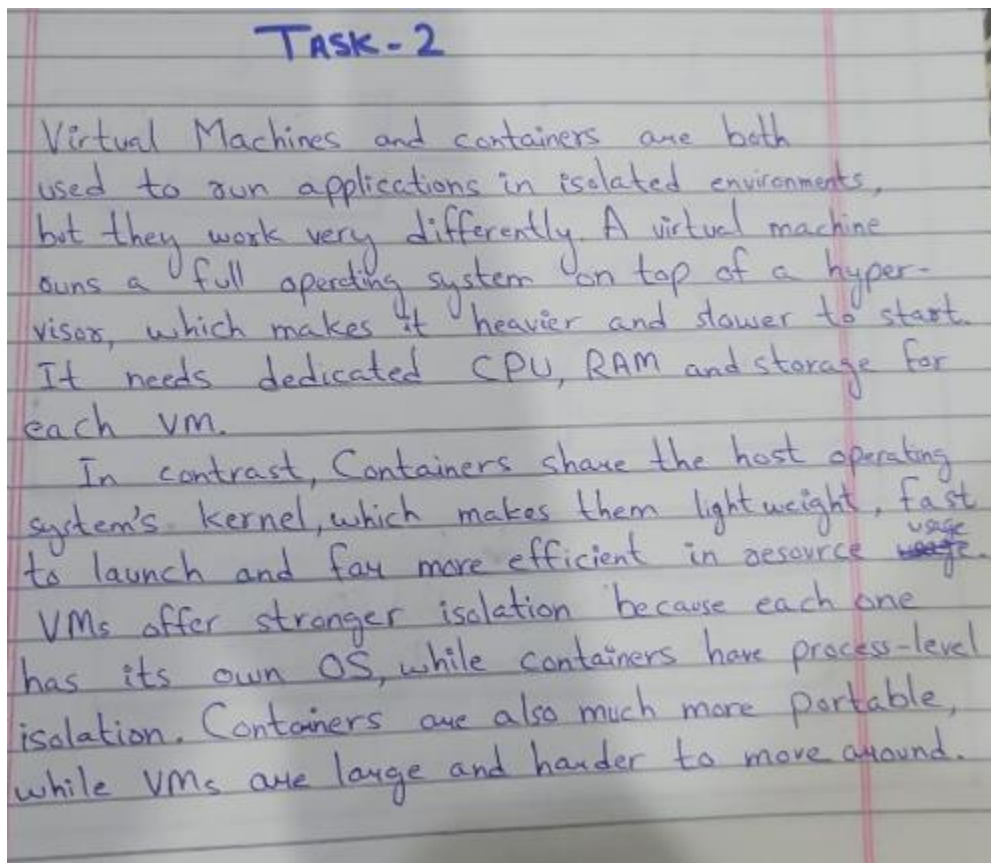 TASK-2
Virtual Machines and containers are both
used to run applications in isolated environments,
but they work very differently. A virtual machine
runs a full operating system on top of a hyper-
visor, which makes it heavier and slower to start.
It needs dedicated CPU, RAM and storage for
each VM.
In contrast, Containers share the host operating
system's kernel, which makes them lightweight, fast
to launch and far more efficient in resource usage.
VMs offer stronger isolation because each one
has its own OS, while containers have process-level
isolation. Containers are also much more portable,
while VMs are large and harder to move around.